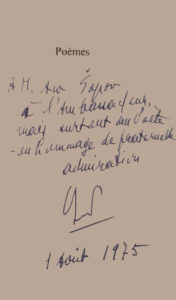 Poèmes
A M. Aco Šopov
à l'Ambassadeur,
mais surtout au Poète
en hommage de fraternelle
admiration
1 Août 1975